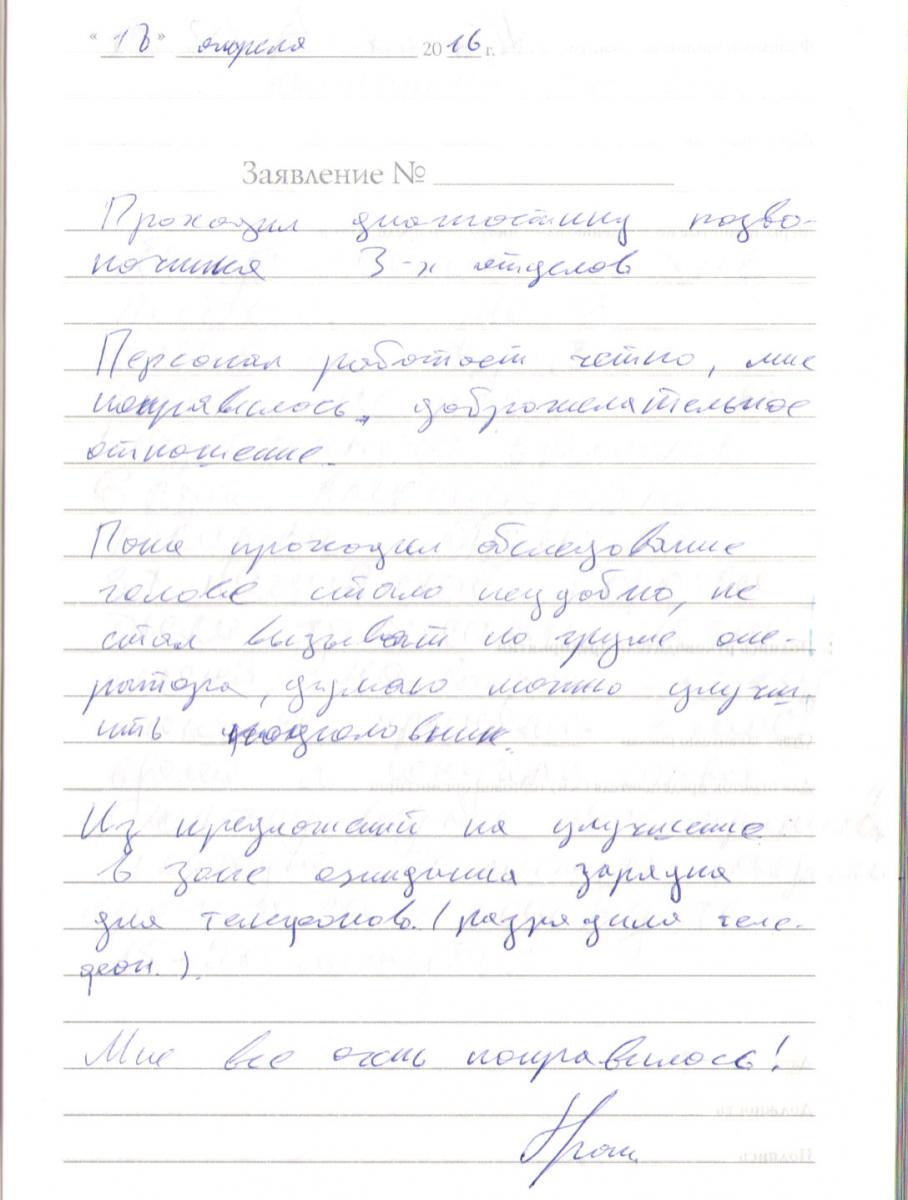 " " апреля 2016 г.
Заявление №
Проходил диагностику позво-
ночника 3-х отделов
Персонал работает четко, мне
понравилось, доброжелательное
отношение.
Пока проходил обследование
голове стало неудобно, не
стал вызыват по груше опе-
ратора, думаю можно улучш-
ить подголовник.
Из предложений на улучшение
в зоне ожидания зарядка
для телефонов. (разрядился теле-
фон.).
Мне все очень понравилось!